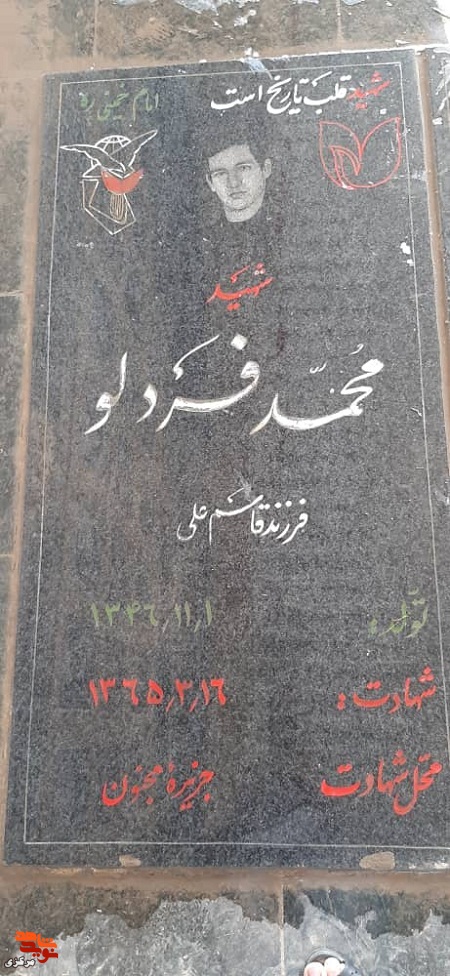 شهید قلب تاریخ است
امام خمینی ره
شهید
محمّد فردلو
فرزند قاسم علی
تولّد: ۱۳۴۶٫۱۱٫۱
شهادت: ۱۳۶۵٫۳٫۱۶
محل شهادت جزیرهٔ مجنون
نوید
مرکزی